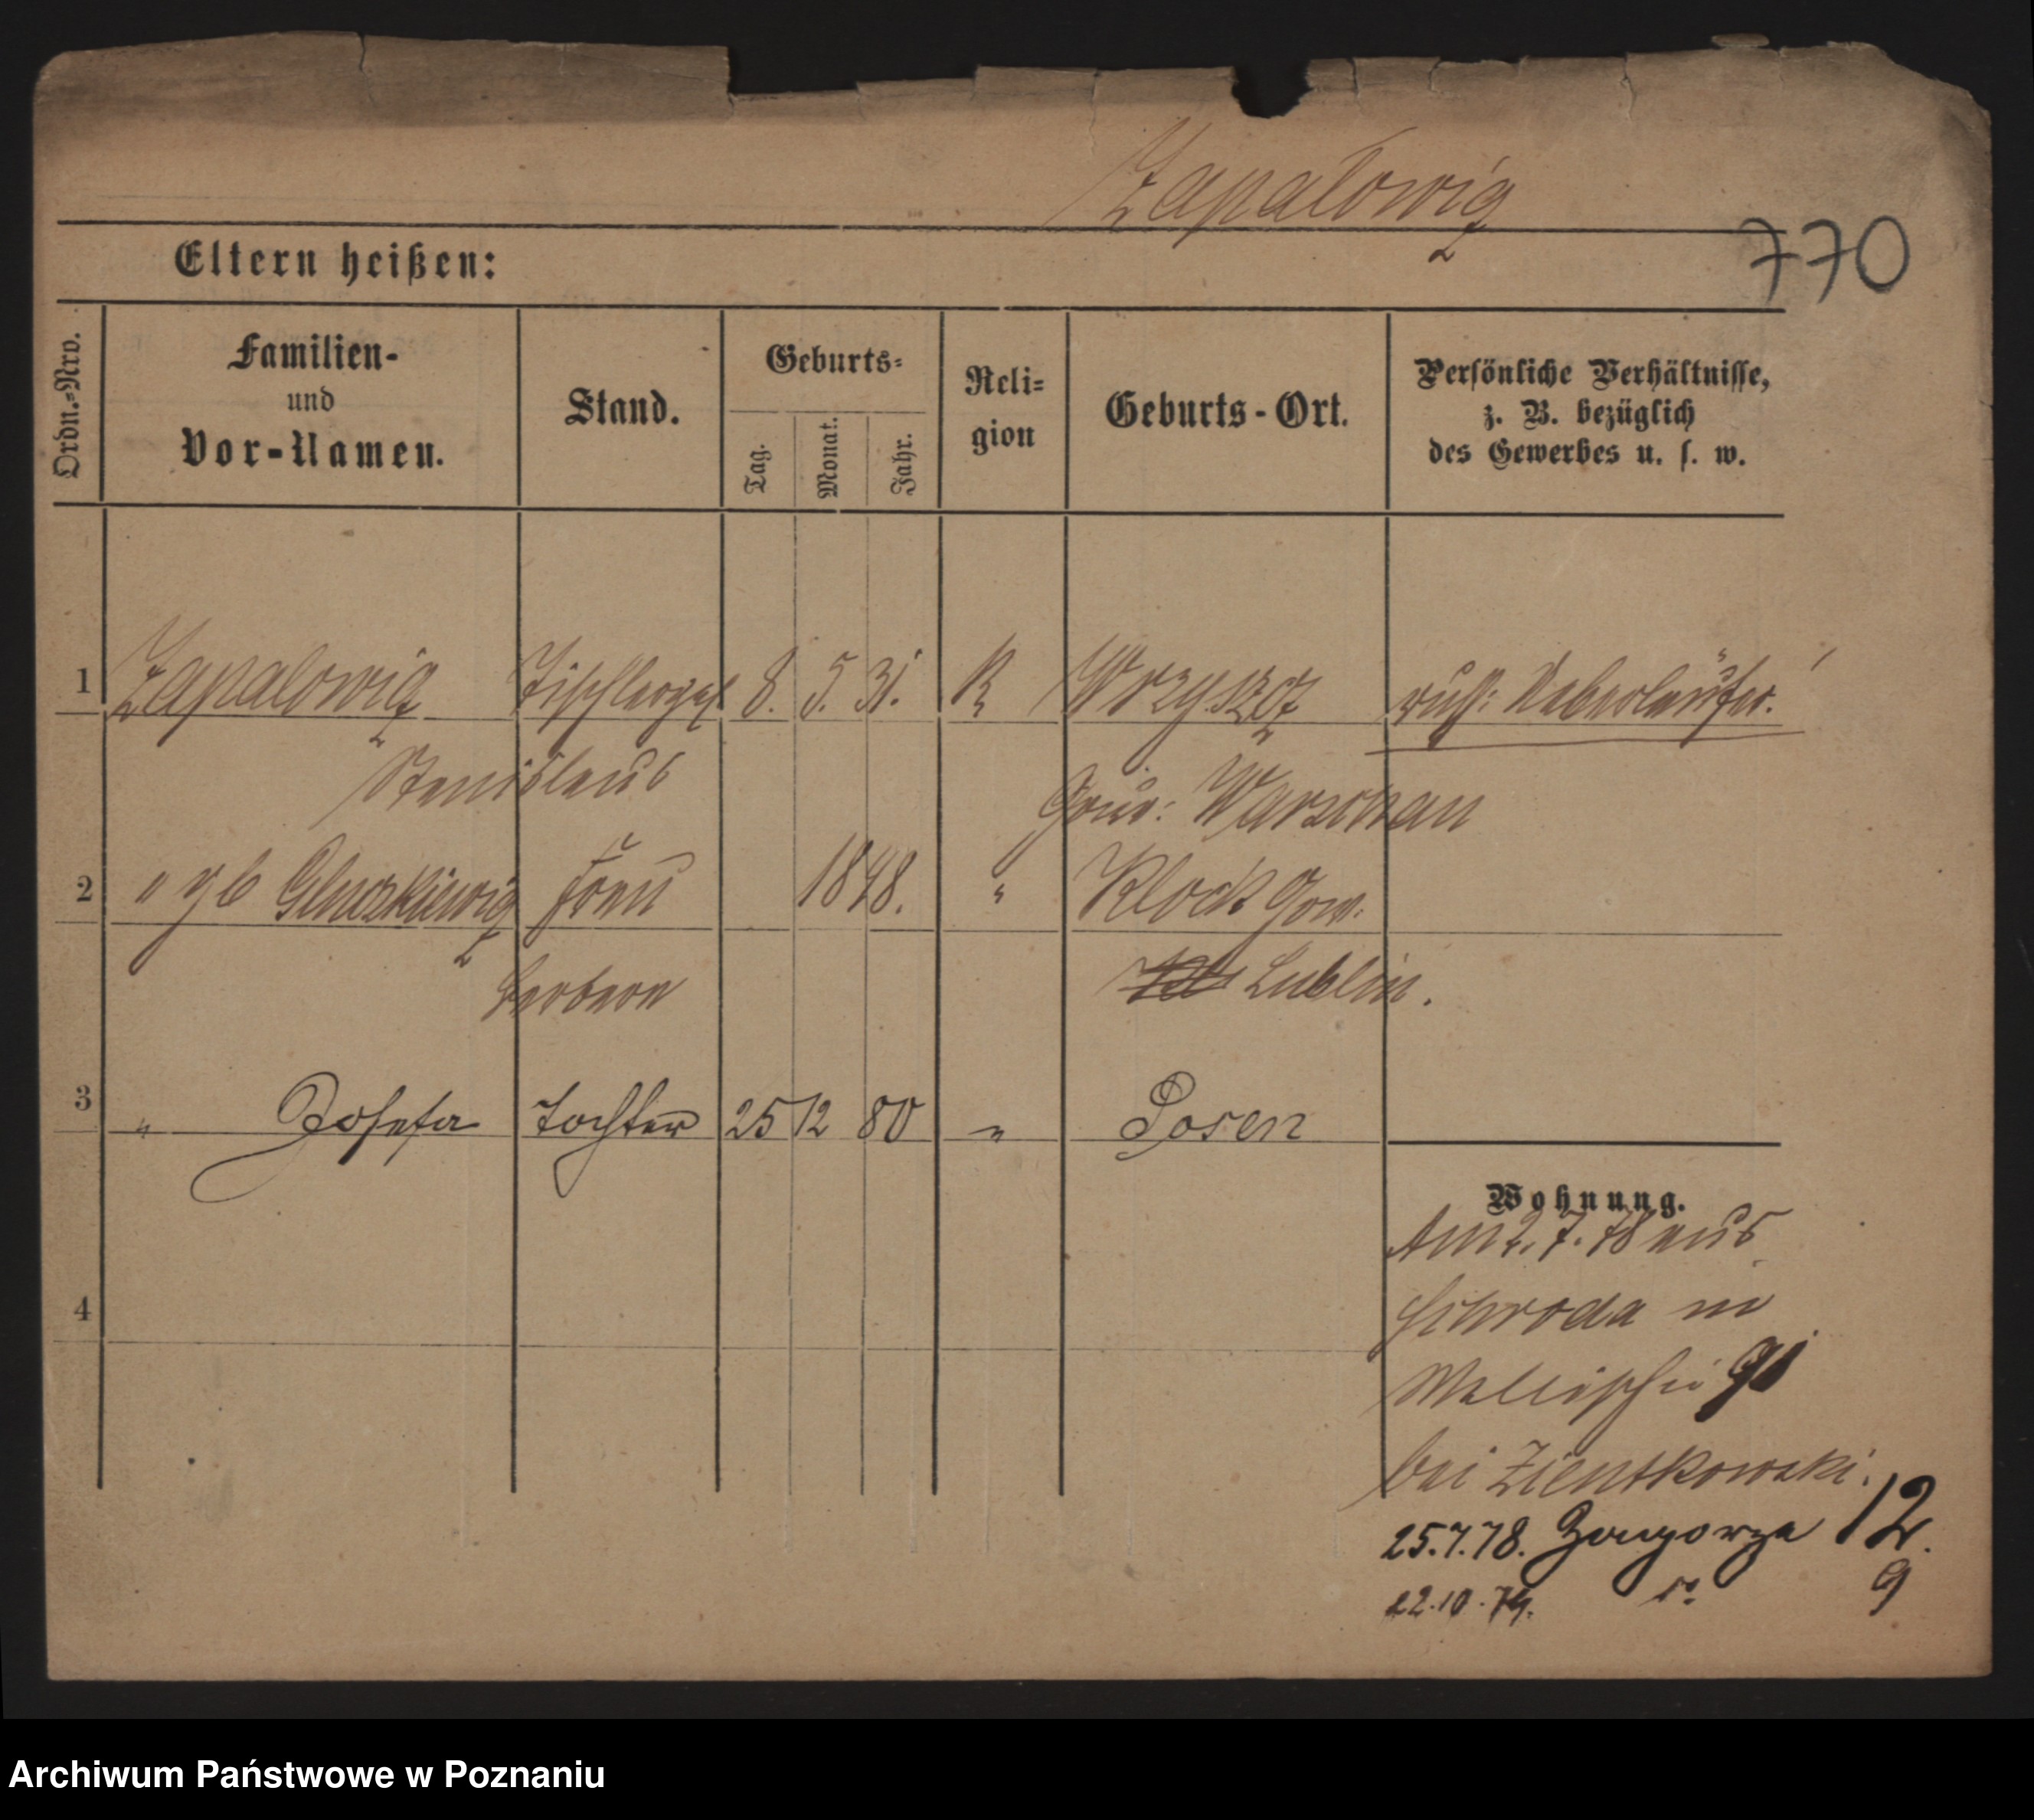 Zapalowicz
770
Eltern heißen:
Ordn.=Nro.
Familien-
und
Vor-Namen.
Stand.
Geburts=
Tag.
Monat.
Jahr.
Reli=
gion
Geburts-Ort.
Persönliche Verhältnisse,
z. B. bezüglich
des Gewerbes u. s. w.
1 Zapalowicz Tischlergsl 8. 5 31. K russ: Ueberläufer.
Stanislaus Gouv: Warschau
2 " gb Frau 1848. " Klock Gouv.
Barbara Lublin.
3 " Josefa Tochter 25 12 80 " Posen
Wohnung.
Am 2. 7. 78 aus
Schroda in
Wallischei 91
bei Zientkowski.
4
25.7.78. Zagorze 12.
22.10.79. 9
Archiwum Państwowe w Poznaniu